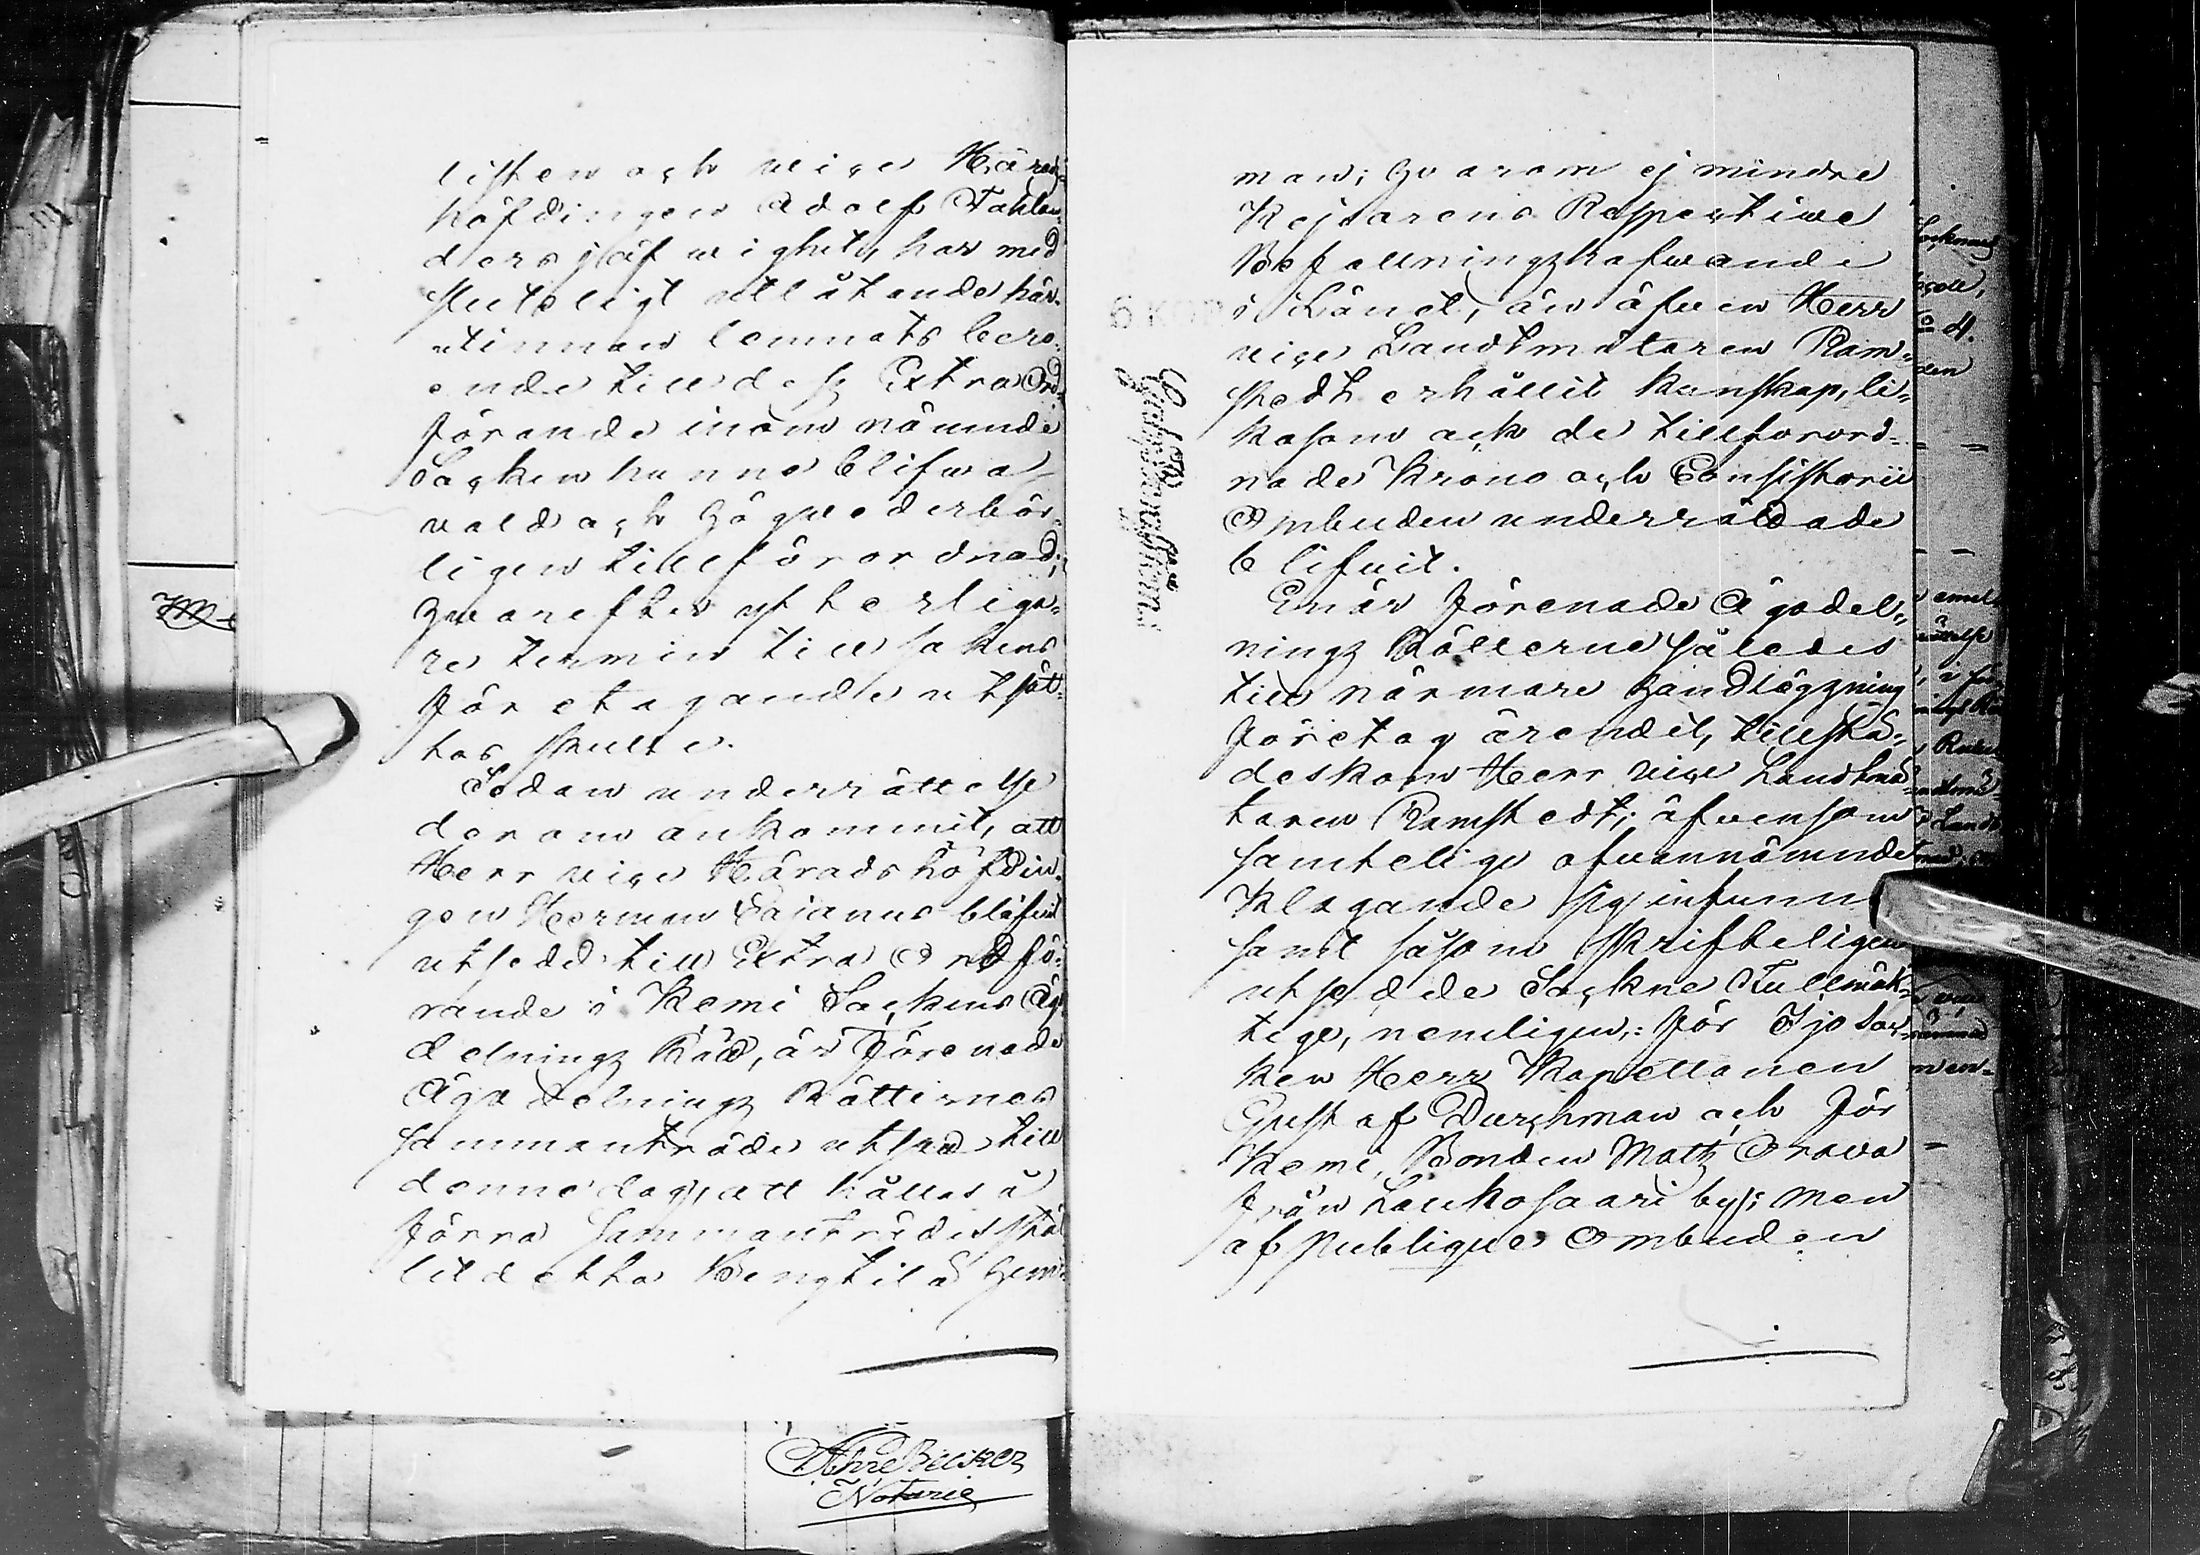 listen och vice Härads
höfdingen Adolf Fahlan
ders jäfvighet, har med
sluteligt utlåtande här
utinnan lemnats bero
ende till dess Extra Ord
förande inom nämnde
Socken hunne blifwa
vald och Högvederbör
ligen tillförordnad;
hwarefter ytterliga
re termin till sakens
företagande utsät
tas skulle.
Sedan underrättelse
derom ankommit, att
Herr vice Härads höfdin
gen Herman Cajanus blifvit
utsedd till Extra Ordfö
rande i Kemi Sockens Ägo
delnings Rätt, är Förenade
Ägo delnings Rätternes
sammanträde utsatt till
denne dag, att hållas å
förra sammanträdes stäl
let detta Bengtilä Hem
man; Hvarom ej mindre
Kejsarens Respective
Befallningshafwande
i Länet, än äfwen Herr
vice Landtmätaren Ram
stedt erhållit kunskap, li
kasom ock de tillförord
nade Krono och Consistorii
Ombuden underrättade
blifvit.
Enär Förenade Ägodel
nings Rätterne således
till närmare Handläggning
företog ärendet, tillstä
deskom Herr vice Landtmä
taren Ramstedt; äfvensom
samtelige ofwannämnde
Klagande sig infunn
samt såsom skrifteligen
utsedde Sockne Fullmäk
tige, nemligen: för Ijo Soc
ken Herr Kapellanen
Gustaf Durchman och för
Kemi, Bonden Matts Orava
från Laukosaari by; men
af publique Ombuden
Notarie